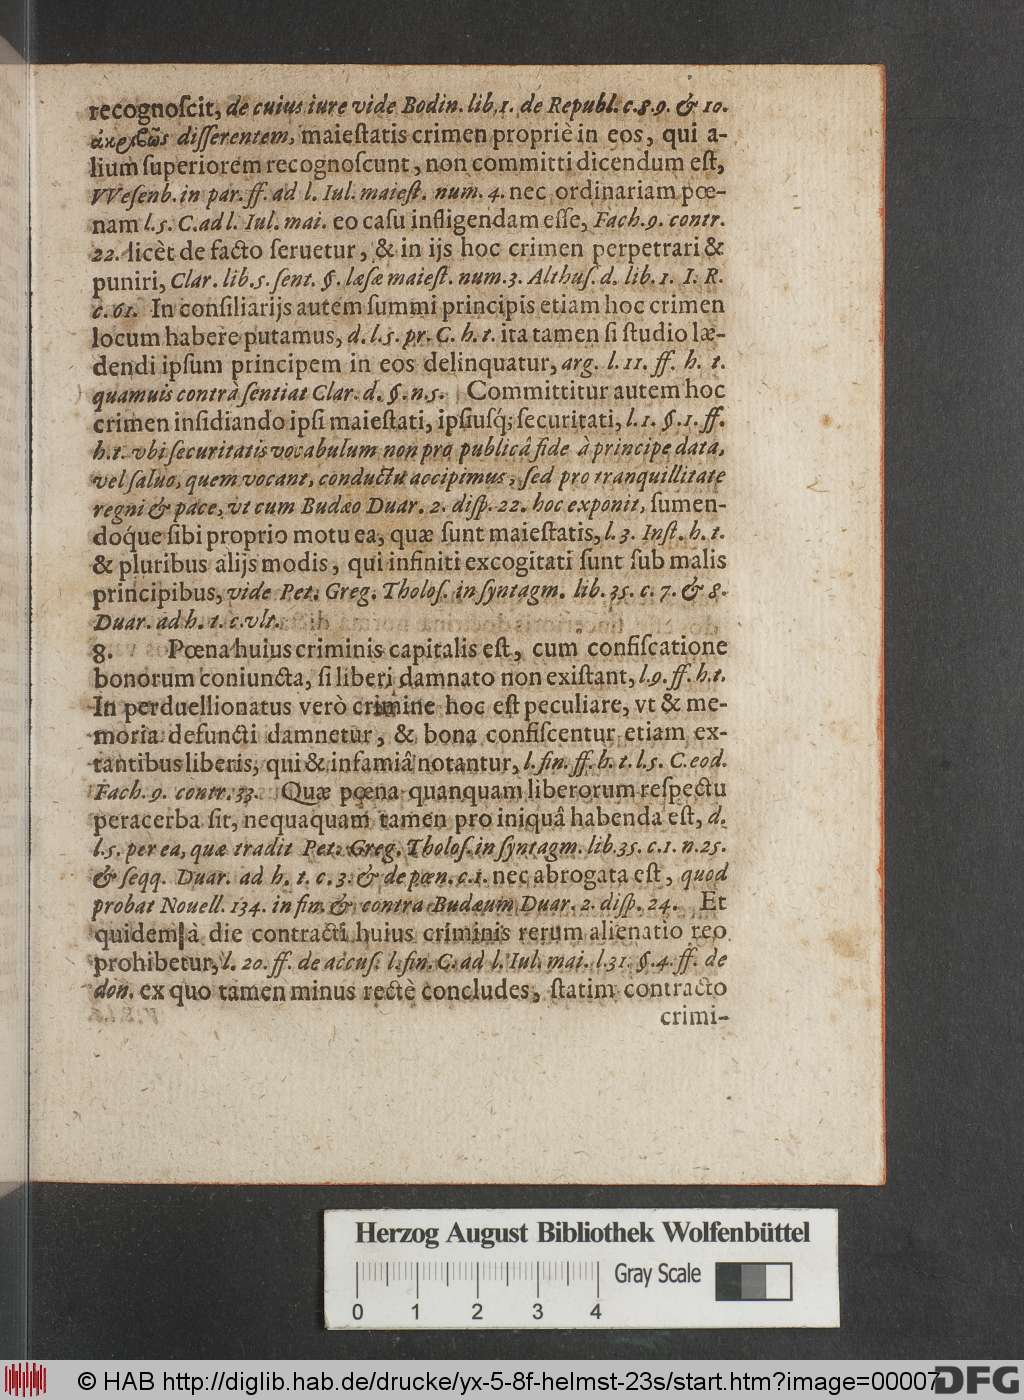 recognoſcit, de cuius iure vide Bodin. lib. 1. de Republ. c. 8. 9. & 10.
ἀκριβῶς diſſerentem, maieſtatis crimen propriè in eos, qui a-
lium ſuperiorem recognoſcunt, non committi dicendum eſt,
VVeſenb. in par. ff. ad l. Iul. maieſt. num. 4. nec ordinariam pœ-
nam l. 5. C. ad l. Iul. mai. eo caſu infligendam eſſe, Fach. 9. contr.
22. licèt de facto ſeruetur, & in ijs hoc crimen perpetrari &
puniri, Clar. lib. 5. ſent. §. læſæ maieſt. num. 3. Althuſ. d. lib. 1. I. R.
c. 61. In conſiliarijs autem ſummi principis etiam hoc crimen
locum habere putamus, d. l. 5. pr. C. h. t. ita tamen ſi ſtudio læ-
dendi ipſum principem in eos delinquatur, arg. l. 11. ff. h. t.
quamuis contrà ſentiat Clar. d. §. n. 5. Committitur autem hoc
crimen inſidiando ipſi maieſtati, ipſiuſq́; ſecuritati, l. 1. §. 1. ff.
h. t. vbi ſecuritatis vocabulum non pro publicâ fide à principe data,
vel ſaluo, quem vocant, conductu accipimus, ſed pro tranquillitate
regni & pace, vt cum Budæo Duar. 2. diſp. 22. hoc exponit, ſumen-
doq́ue ſibi proprio motu ea, quæ ſunt maieſtatis, l. 3. Inſt. h. t.
& pluribus alijs modis, qui infiniti excogitati ſunt ſub malis
principibus, vide Pet. Greg. Tholoſ. in ſyntagm. lib. 35. c. 7. & 8.
Duar. ad h. t. c. vlt.
8. Pœna huius criminis capitalis eſt, cum confiſcatione
bonorum coniuncta, ſi liberi damnato non exiſtant, l. 9. ff. h. t.
In perduellionatus verò crimine hoc eſt peculiare, vt & me-
moria defuncti damnetur, & bona confiſcentur etiam ex-
tantibus liberis, qui & infamiâ notantur, l. fin. ff. h. t. l. 5. C. eod.
Fach. 9. contr. 33. Quæ pœna quanquam liberorum reſpectu
peracerba ſit, nequaquam tamen pro iniquâ habenda eſt, d.
l. 5. per ea, quæ tradit Pet. Greg. Tholoſ. in ſyntagm. lib. 35. c. 1. n. 25.
& ſeqq. Duar. ad h. t. c. 3. & de pœn. c. 1. nec abrogata eſt, quod
probat Nouell. 134. in fin. & contra Budæum Duar. 2. diſp. 24. Et
quidem à die contracti huius criminis rerum alienatio reo
prohibetur, l. 20. ff. de accuſ. l. fin. C. ad l. Iul. mai. l. 31. §. 4. ff. de
don. ex quo tamen minus rectè concludes, ſtatim contracto
crimi-
Herzog August Bibliothek Wolfenbüttel
Gray Scale
0 1 2 3 4
© HAB http://diglib.hab.de/drucke/yx-5-8f-helmst-23s/start.htm?image=00007
DFG